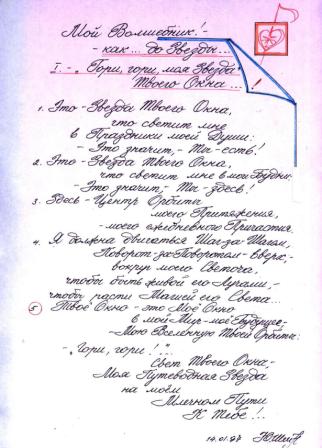 Мой Волшебник!-
- как... до Звезды...
I. - „Гори, гори, моя Звезда
Твоего Окна...
1. Это - Звезда Твоего Окна,
что светит мне
в Праздники моей Души:
- Это значит,- Ты - есть!
2. Это - Звезда Твоего Окна,
что светит мне в мои Будни:
- Это значит,- Ты - здесь!
3. Здесь - Центр Орбиты
моего Притяжения,
- моего ежедневного Причастия
4. Я должна двигаться Шаг-за Шагом,
Поворот-за Поворотом - Вверх,-
вокруг моего Светоча,
чтобы быть живой его Лучами,-
чтобы расти Магией его Света...
5 Твоё Окно - это Моё Окно
в мой Мир - моё Будущее-
- Мою Вселенную Твоей Орбиты:
- „Гори, гори!"...
Свет Твоего Окна,-
Моя Путеводная Звезда
на моём
Млечном Пути
К Тебе!..
14.01.97